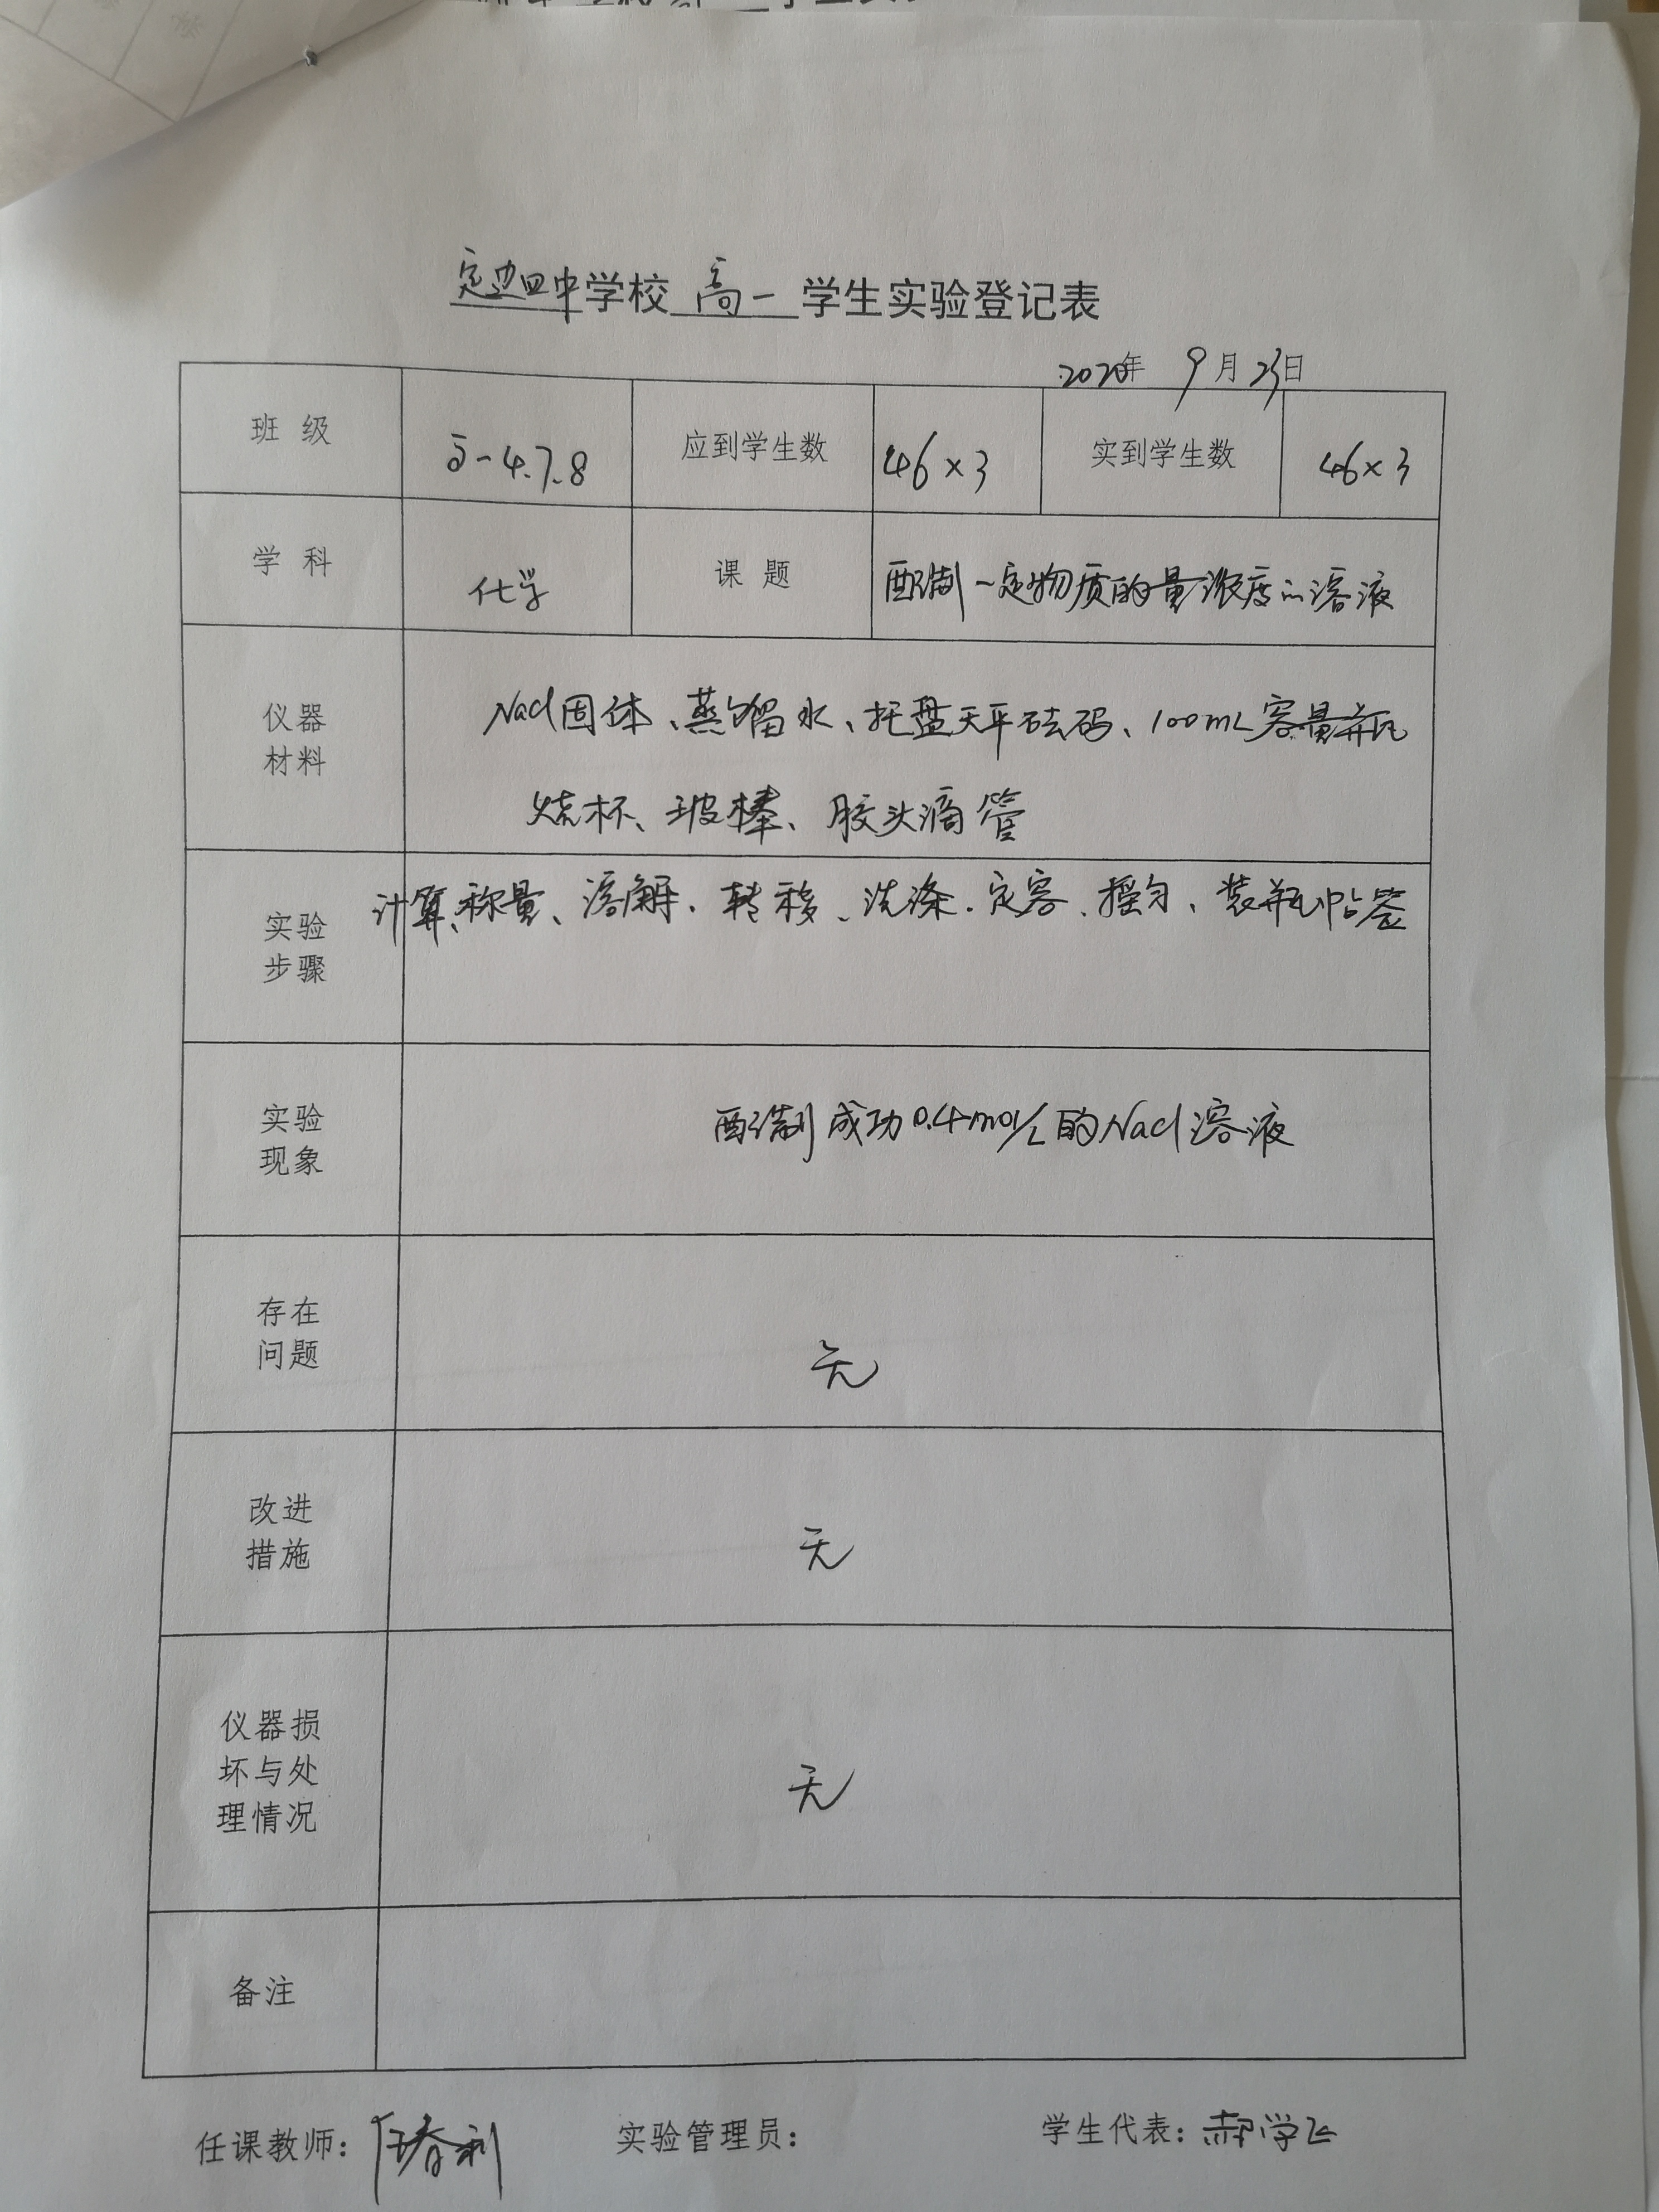 定边四中学校 高一 学生实验登记表
2020年 9月23日
班 级 高一4.7.8 应到学生数 46×3 实到学生数 46×3
学 科 化学 课 题 配制一定物质的量浓度的溶液
仪器
材料
NaCl固体、蒸馏水、托盘天平砝码、100mL容量瓶
烧杯、玻棒、胶头滴管
实验
步骤
计算、称量、溶解、转移、洗涤、定容、摇匀、装瓶贴签
实验
现象
配制成功0.4mol/L的NaCl溶液
存在
问题
无
改进
措施
无
仪器损
坏与处
理情况
无
备注
任课教师： 任春利 实验管理员： 学生代表：郝学飞